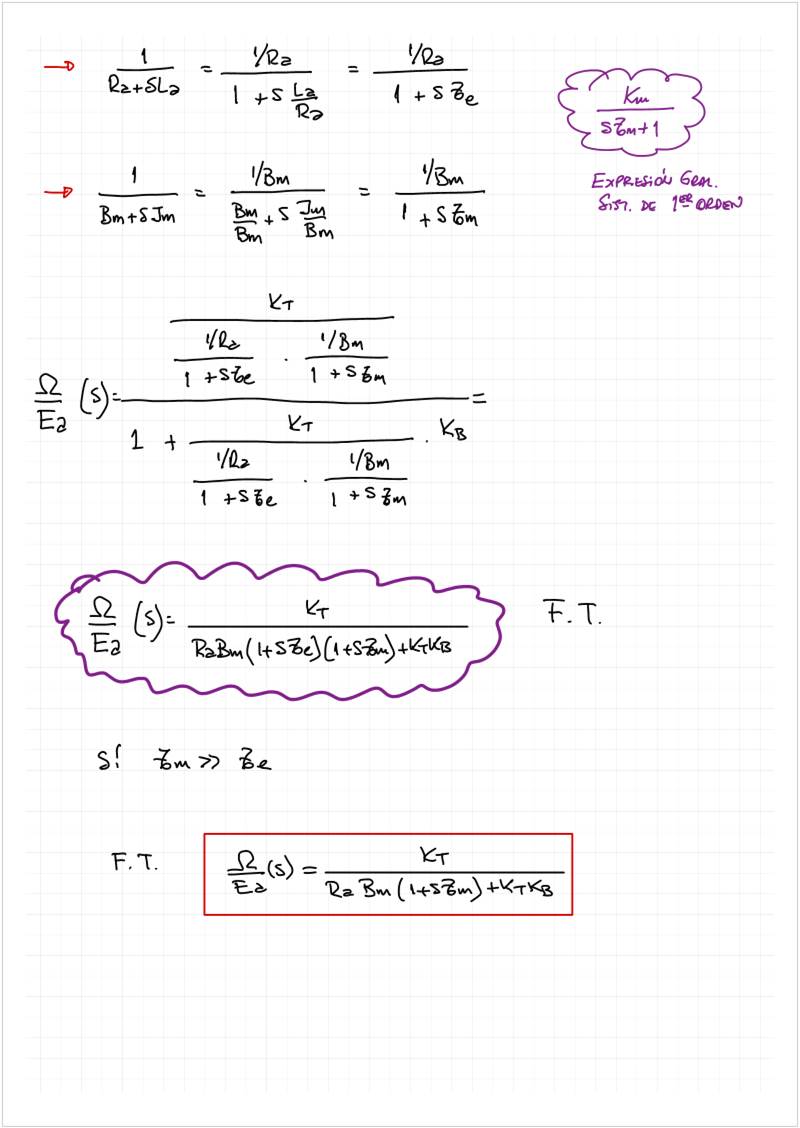 → 1/(Ra+SLa) = (1/Ra)/(1+S La/Ra) = (1/Ra)/(1+Sτe)
Km/(Sτm+1)
EXPRESIÓN GRAL.
SIST. DE 1ER ORDEN
→ 1/(Bm+SJm) = (1/Bm)/(Bm/Bm+S Jm/Bm) = (1/Bm)/(1+Sτm)
Ω/Ea (S) = (KT/((1/Ra)/(1+Sτe) · (1/Bm)/(1+Sτm)))/(1 + KT/((1/Ra)/(1+Sτe) · (1/Bm)/(1+Sτm)) · KB) =
Ω/Ea (S) = KT/(RaBm(1+Sτe)(1+Sτm)+KTKB) F.T.
SÍ τm >> τe
F.T. Ω/Ea (S) = KT/(Ra Bm (1+Sτm)+KTKB)